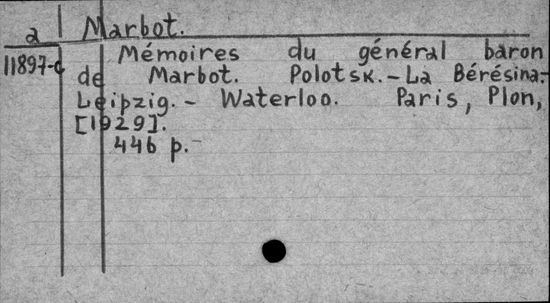 a Marbot.
11897-c Mémoires du général baron
de Marbot. Polotsk.-La Bérésina.-
Leipzig.- Waterloo. Paris, Plon,
[1929].
446 p.-